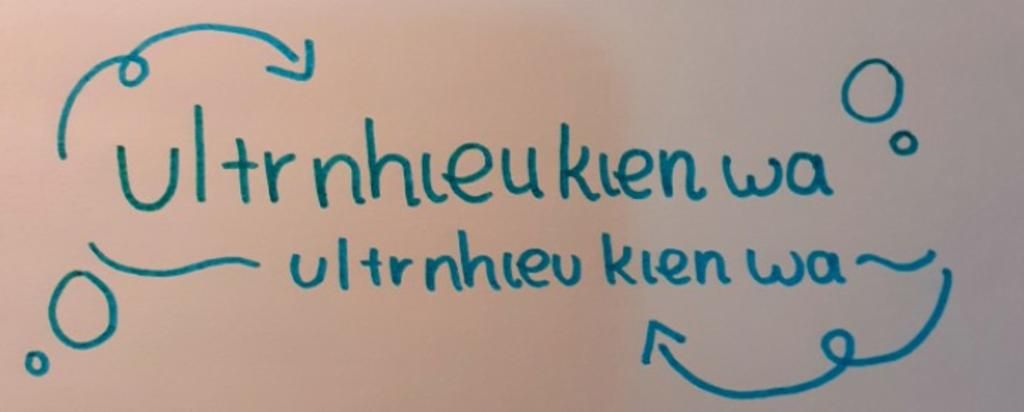 ultrnhieukien wa
ultrnhieu kien wa